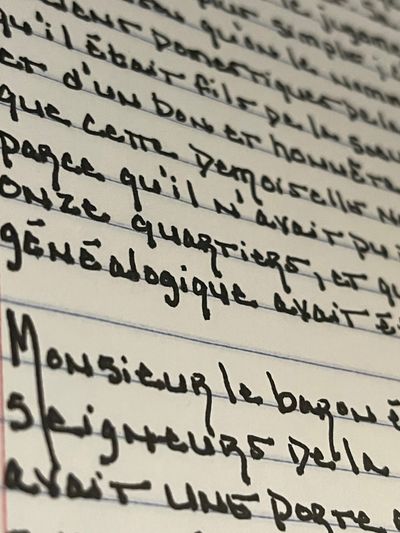 simple, j
qu'on le nomm
domestiques de la
qu'il était fils de la sœu
et d'un bon et honnête
que cette demoiselle n
parce qu'il n'avait pu
onze quartiers, et q
généalogique avait é
Monsieur le baron é
seigneurs de la
avait une porte